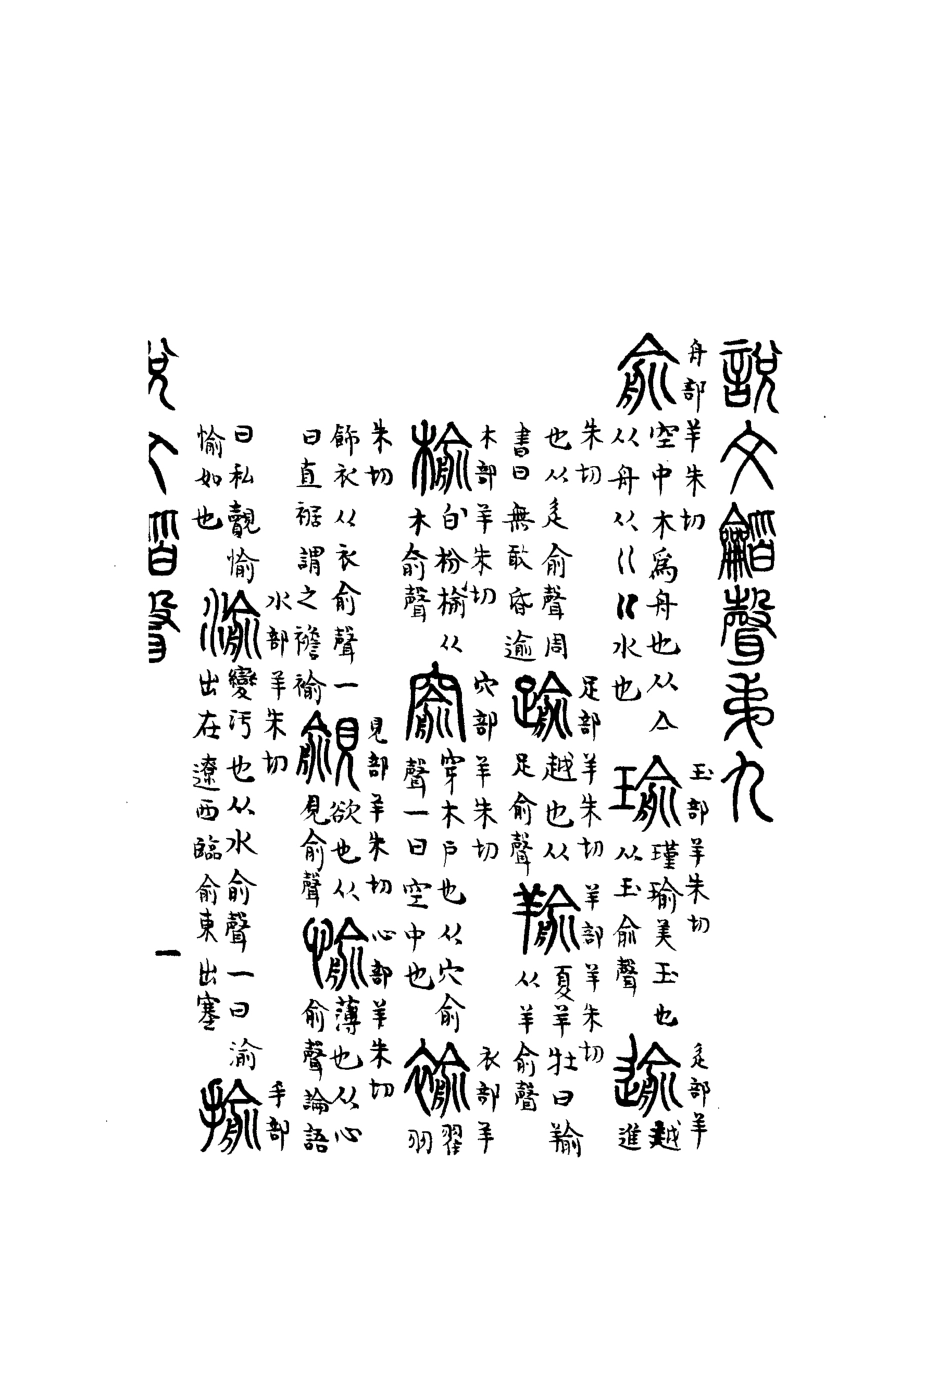 說文龤聲弟九
俞 舟部 羊朱切 空中木爲舟也从亼从舟从巜巜水也
瑜 玉部 羊朱切 瑾瑜美玉也从玉俞聲
逾 辵部 羊朱切 越進也从辵俞聲周書曰無敢昏逾
踰 足部 羊朱切 越也从足俞聲
羭 羊部 羊朱切 夏羊牡曰羭从羊俞聲
榆 木部 羊朱切 白枌榆从木俞聲
窬 穴部 羊朱切 穿木戶也从穴俞聲一曰空中也
褕 衣部 羊朱切 翟羽飾衣从衣俞聲一曰直裾謂之襜褕
覦 見部 羊朱切 欲也从見俞聲
愉 心部 羊朱切 薄也从心俞聲論語曰私覿愉愉如也
渝 水部 羊朱切 變汚也从水俞聲一曰渝出在遼西臨俞東出塞
揄 手部
說文龤聲
一